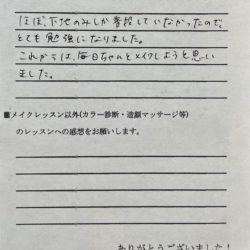 ほぼ、下地のみしか普段していなかったので、
とても勉強になりました。
これからは、毎日ちゃんとメイクしようと思い
ました。
■メイクレッスン以外(カラー診断・造顔マッサージ等)
のレッスンへの感想をお願いします。
ありがとうございました！